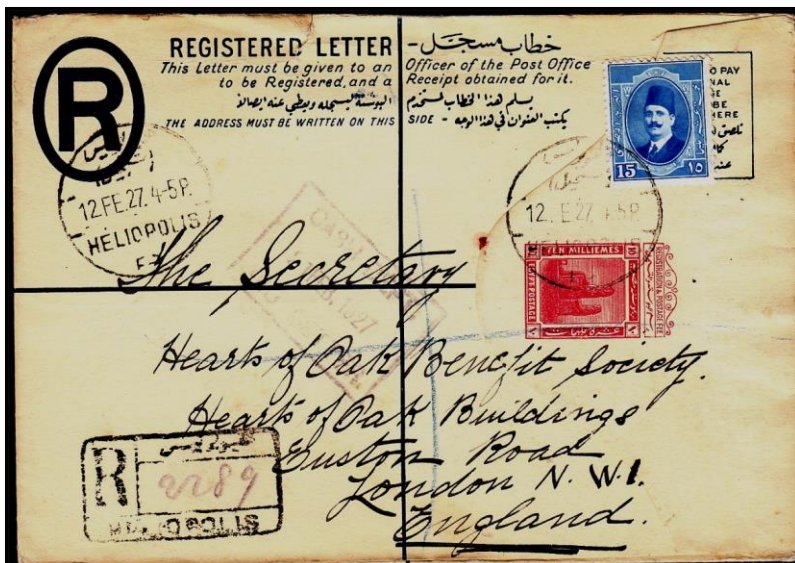 REGISTERED LETTER - خطاب مسجل
This Letter must be given to an Officer of the Post Office
to be Registered, and a Receipt obtained for it.
يسلم هذا الخطاب لمستخدم البوستة ليسجله ويعطي عنه إيصالا
THE ADDRESS MUST BE WRITTEN ON THIS SIDE - يكتب العنوان في هذا الوجه
R
O PAY
BE
HERE
15 ١٥
12.FE.27.4-5P.
HELIOPOLIS
12. E.27. 4-5P.
HELIOPOLIS
TEN MILLIEMES
EGYPT POSTAGE
REGISTRATION & POSTAGE FEE
عشرة مليمات
The Secretary
Hearts of Oak Benefit Society.
Hearts of Oak Buildings
Euston Road
London N.W.1.
England.
R
2289